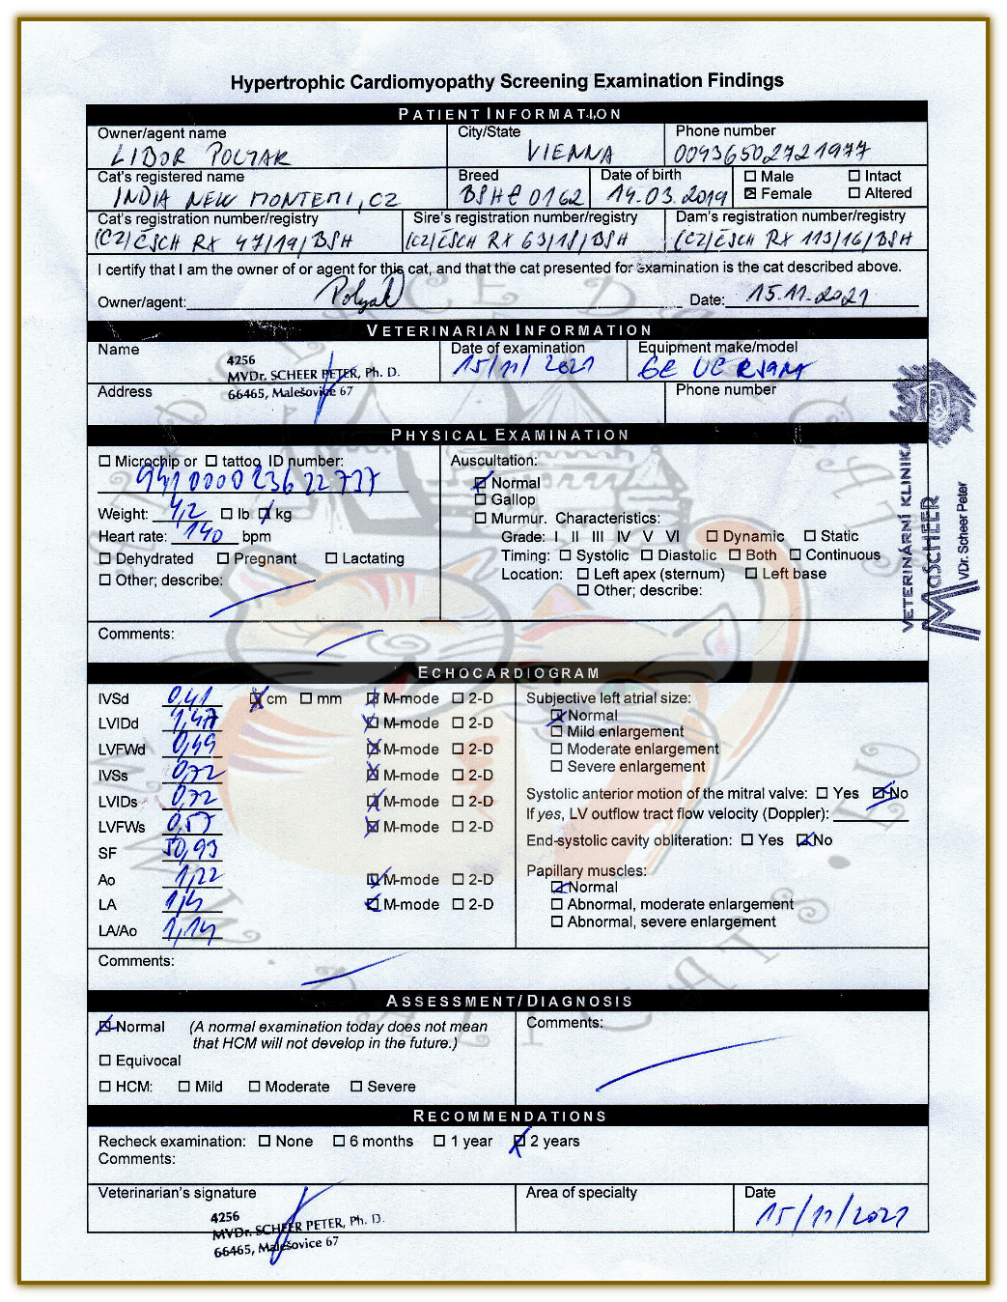 Hypertrophic Cardiomyopathy Screening Examination Findings
PATIENT INFORMATION
Owner/agent name City/State Phone number
LIBOR POLYAK VIENNA 00436502721977
Cat's registered name Breed Date of birth ☐ Male ☐ Intact
INDIA NEW MONTEMI, CZ BSH C 0162 14.03.2019 ☒ Female ☐ Altered
Cat's registration number/registry Sire's registration number/registry Dam's registration number/registry
(CZ)ČSCH RX 47/19/BSH (CZ)ČSCH RX 63/18/BSH (CZ)ČSCH RX 113/16/BSH
I certify that I am the owner of or agent for this cat, and that the cat presented for examination is the cat described above.
Owner/agent: Polyak Date: 15.11.2021
VETERINARIAN INFORMATION
Name Date of examination Equipment make/model
4256 15/11/2021 GE
MVDr. SCHEER PETER, Ph. D.
Address 66465, Malešovice 67 Phone number
PHYSICAL EXAMINATION
☐ Microchip or ☐ tattoo ID number: Auscultation:
941000023622737 ☒ Normal
☐ Gallop
Weight: 4,2 ☐ lb ☒ kg ☐ Murmur. Characteristics:
Heart rate: 140 bpm Grade: I II III IV V VI ☐ Dynamic ☐ Static
☐ Dehydrated ☐ Pregnant ☐ Lactating Timing: ☐ Systolic ☐ Diastolic ☐ Both ☐ Continuous
☐ Other; describe: Location: ☐ Left apex (sternum) ☐ Left base
☐ Other; describe:
Comments:
VETERINÁRNÍ KLINIKA
MaSCHEER
MVDr. Scheer Peter
ECHOCARDIOGRAM
IVSd 0,41 ☒ cm ☐ mm ☒ M-mode ☐ 2-D Subjective left atrial size:
LVIDd 1,47 ☒ M-mode ☐ 2-D ☒ Normal
LVFWd 0,49 ☒ M-mode ☐ 2-D ☐ Mild enlargement
☐ Moderate enlargement
IVSs 0,72 ☒ M-mode ☐ 2-D ☐ Severe enlargement
LVIDs 0,72 ☒ M-mode ☐ 2-D Systolic anterior motion of the mitral valve: ☐ Yes ☒ No
LVFWs 0,57 ☒ M-mode ☐ 2-D If yes, LV outflow tract flow velocity (Doppler):
SF 50,93 End-systolic cavity obliteration: ☐ Yes ☒ No
Ao 1,22 ☒ M-mode ☐ 2-D Papillary muscles:
☒ Normal
LA 1,4 ☒ M-mode ☐ 2-D ☐ Abnormal, moderate enlargement
LA/Ao 1,14 ☐ Abnormal, severe enlargement
Comments:
ASSESSMENT/DIAGNOSIS
☒ Normal (A normal examination today does not mean Comments:
that HCM will not develop in the future.)
☐ Equivocal
☐ HCM: ☐ Mild ☐ Moderate ☐ Severe
RECOMMENDATIONS
Recheck examination: ☐ None ☐ 6 months ☐ 1 year ☒ 2 years
Comments:
Veterinarian's signature Area of specialty Date
4256 15/11/2021
MVDr. SCHEER PETER, Ph. D.
66465, Malešovice 67